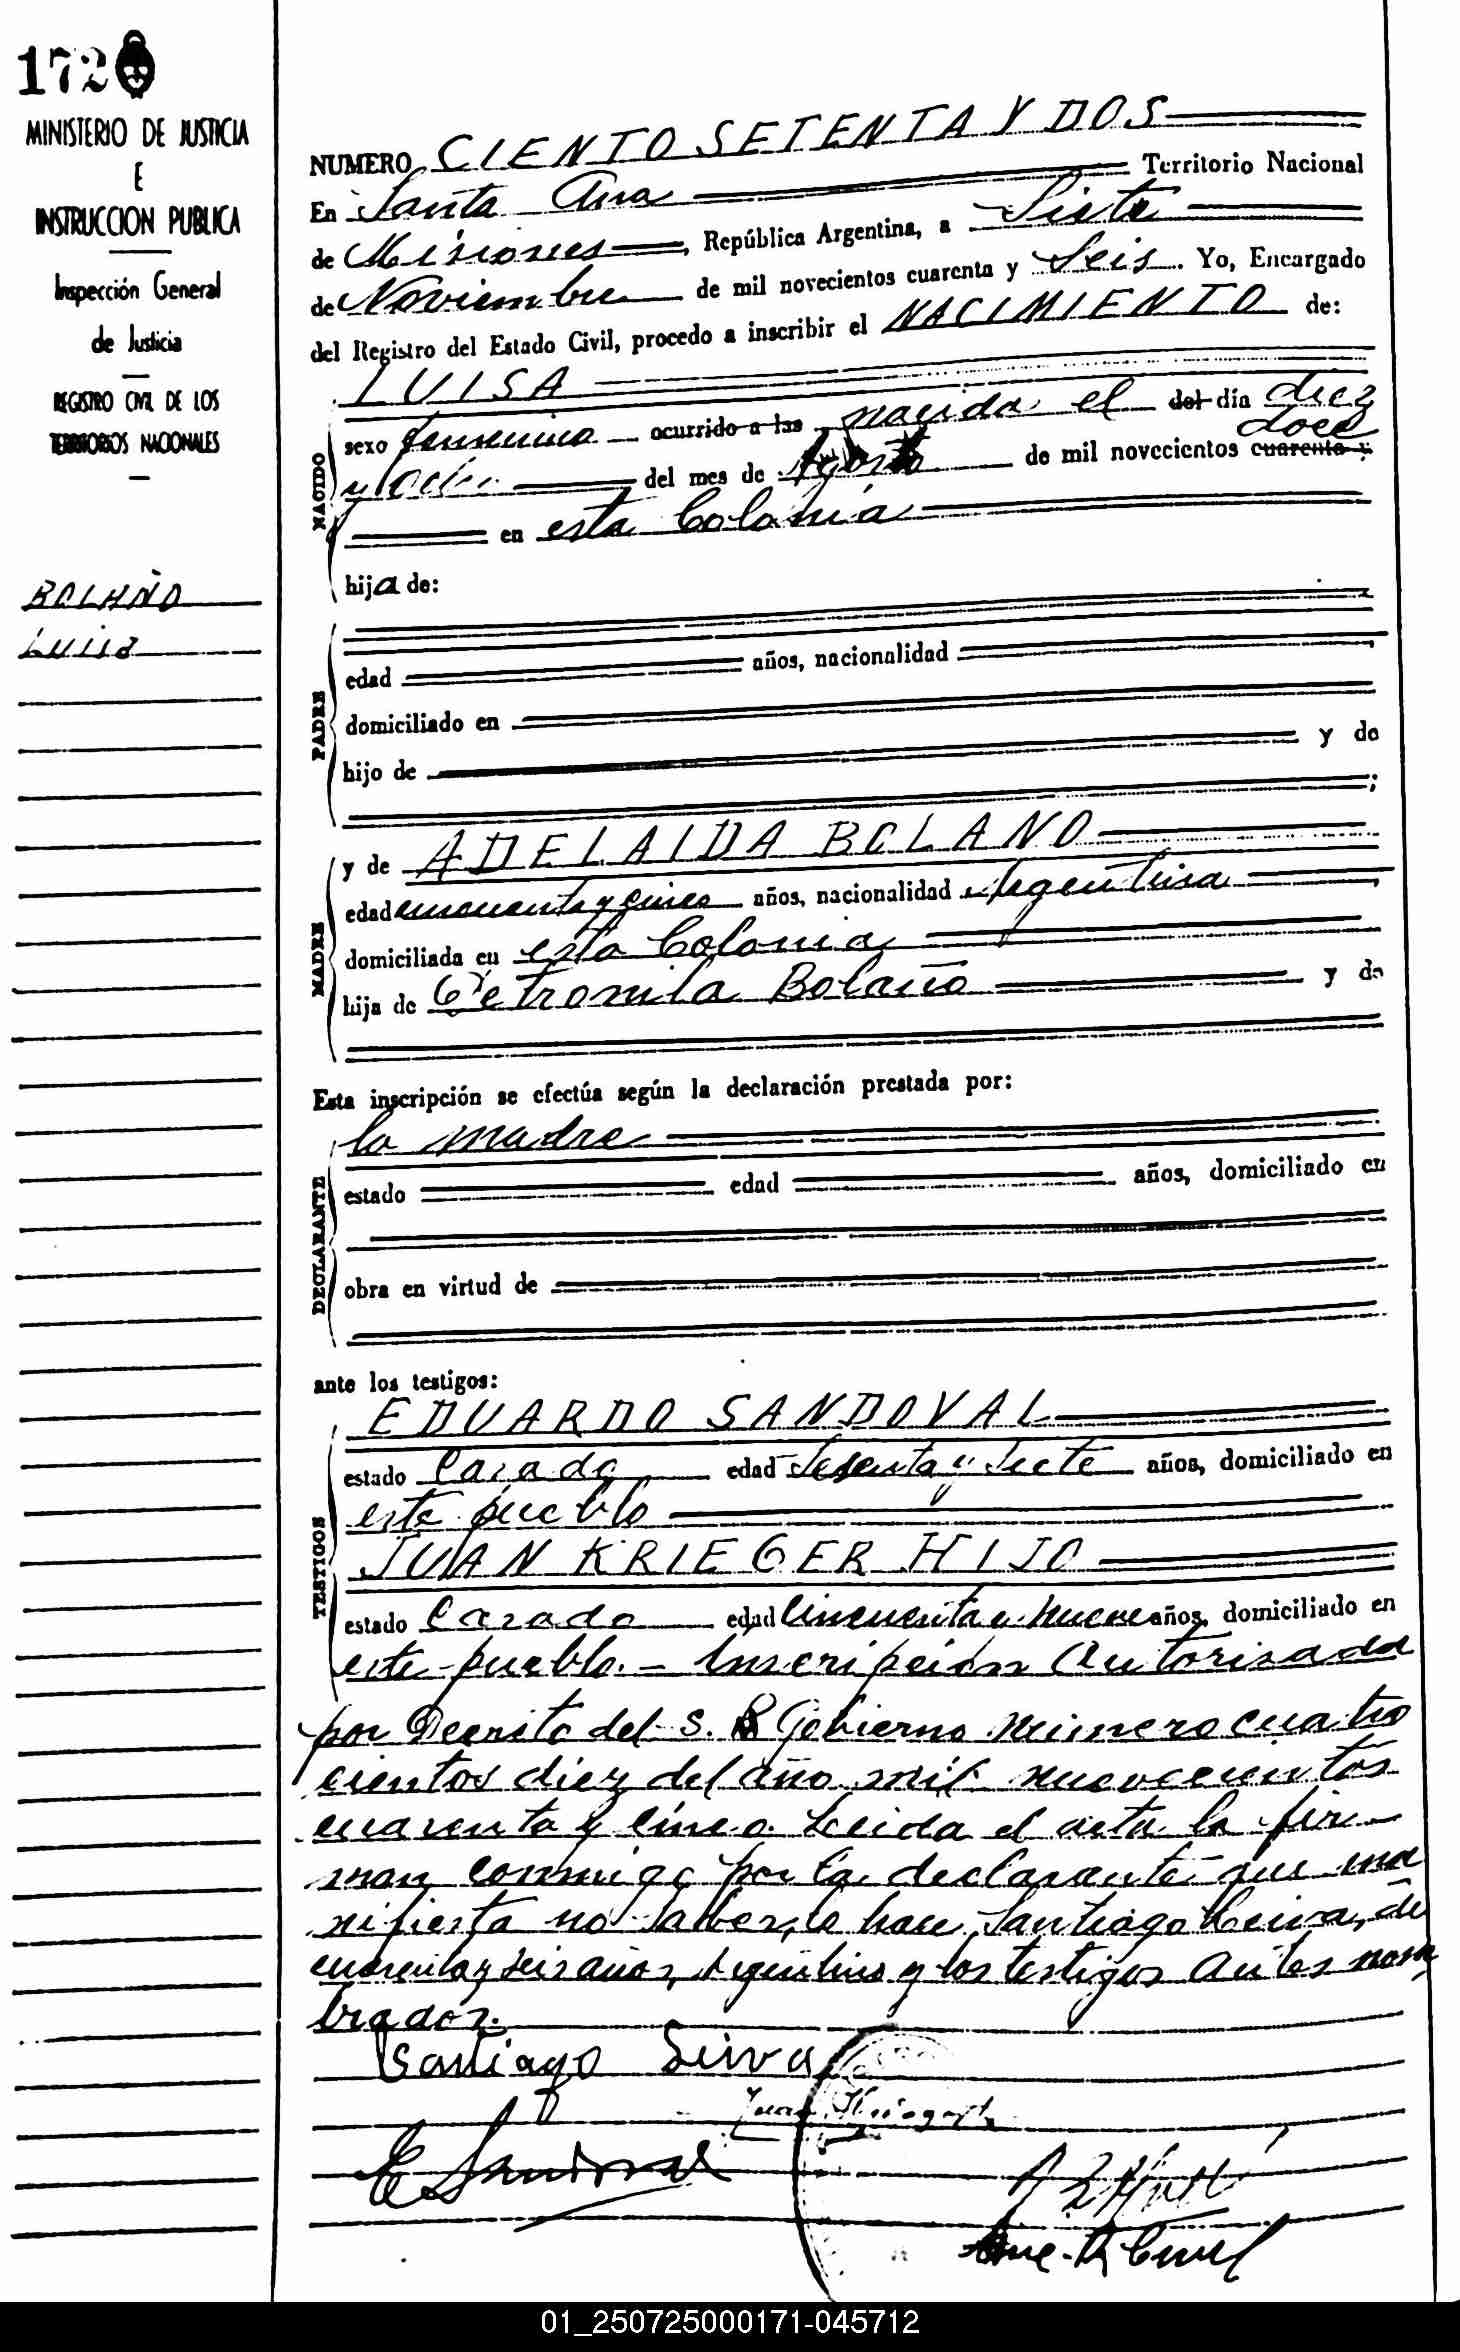 172
MINISTERIO DE JUSTICIA
E
INSTRUCCION PUBLICA
Inspección General
de Justicia
REGISTRO CIVIL DE LOS
TERRITORIOS NACIONALES
BOLAÑO
LUISA
NUMERO CIENTO SETENTA Y DOS
En Santa Ana Territorio Nacional
de Misiones, República Argentina, a Siete
de Noviembre de mil novecientos cuarenta y Seis. Yo, Encargado
del Registro del Estado Civil, procedo a inscribir el NACIMIENTO de:
NACIDO
LUISA
sexo femenino ocurrido a las nacida el del día diez
y ocho del mes de Agosto de mil novecientos cuarenta y doce
en esta Colonia
hija de:
PADRE
edad años, nacionalidad
domiciliado en
hijo de y de
;
MADRE
y de ADELAIDA BOLAÑO
edad cincuenta y cinco años, nacionalidad Argentina
domiciliada en esta Colonia
hija de Petronila Bolaño y de
Esta inscripción se efectúa según la declaración prestada por:
DECLARANTE
la madre
estado edad años, domiciliado en
obra en virtud de
ante los testigos:
TESTIGOS
EDUARDO SANDOVAL
estado Casado edad Sesenta y Siete años, domiciliado en
este pueblo
JUAN KRIEGER HIJO
estado Casado edad Cincuenta y nueve años, domiciliado en
este pueblo.- Inscripción Autorisada
por Decreto del S. Gobierno número cuatro
cientos diez del año mil nuevecientos
cuarenta y cinco. Leida el acta la fir-
man conmigo por la declarante que ma
nifiesta no saber, lo hace Santiago Leiva, de
cuarenta y seis años, Argentino y los testigos antes nom
brados.
Santiago Leiva
Juan Krieger h
E Sandoval
Enc. R Civil
01_250725000171-045712